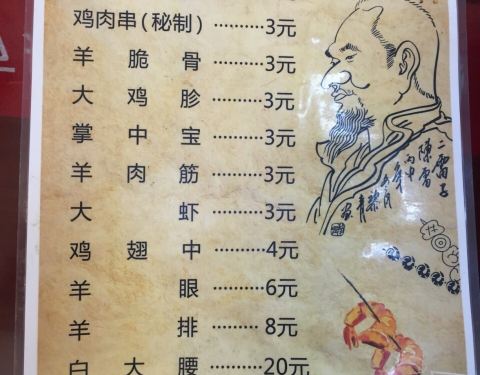 鸡肉串(秘制)··········3元
羊脆骨··········3元
大鸡胗··········3元
掌中宝··········3元
羊肉筋··········3元
大虾··········3元
鸡翅中··········4元
羊眼··········6元
羊排··········8元
白大腰··········20元
二雷子
陳雷
丙申